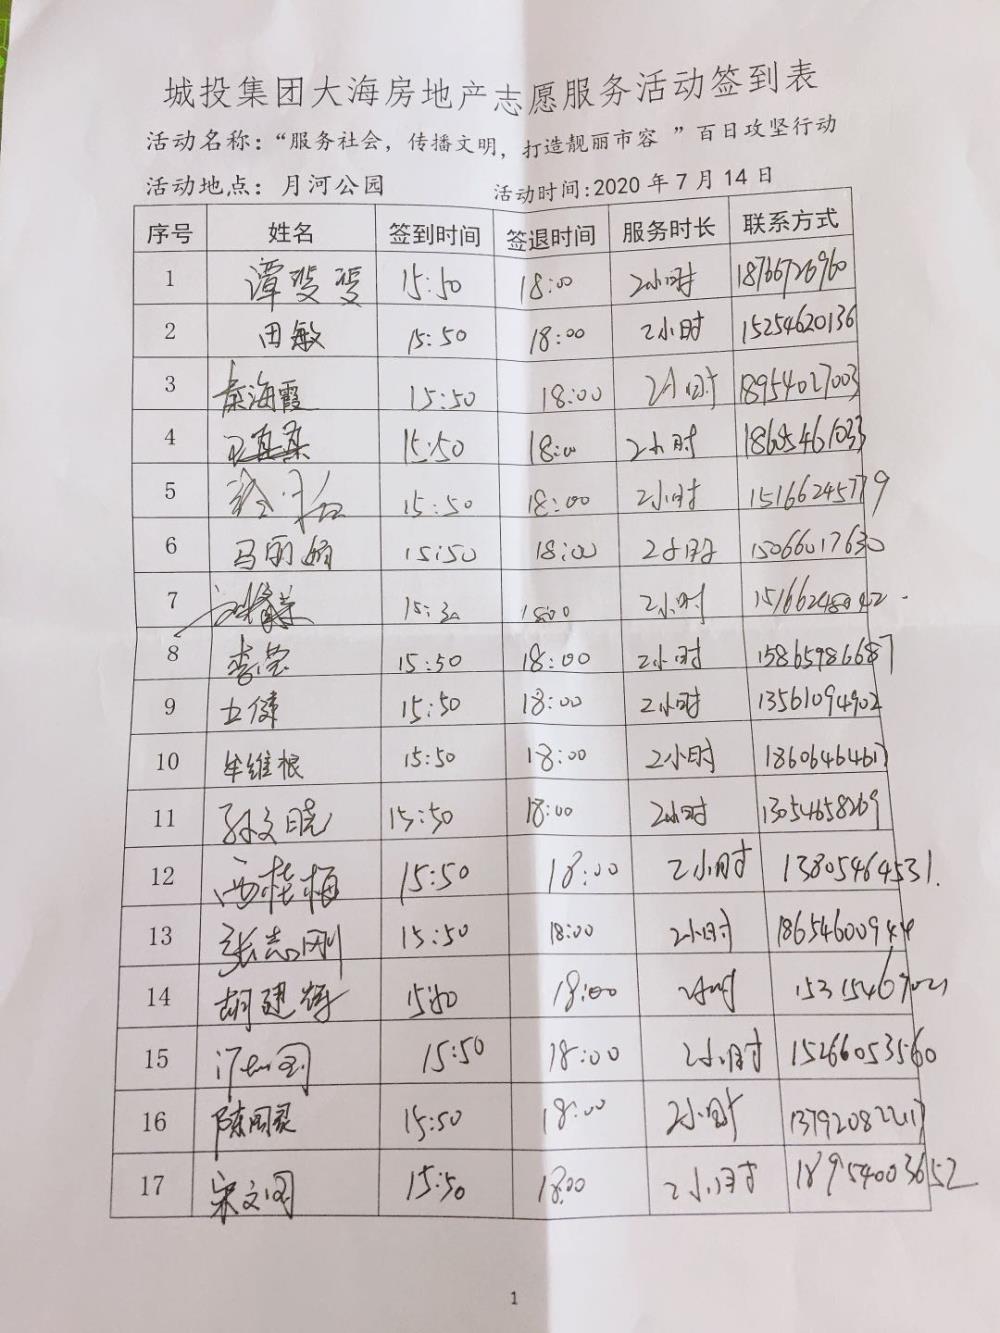 城投集团大海房地产志愿服务活动签到表
活动名称:“服务社会，传播文明，打造靓丽市容 ”百日攻坚行动
活动地点：月河公园 活动时间:2020 年 7 月 14 日
序号 姓名 签到时间 签退时间 服务时长 联系方式
1 谭 15:50 18:00 2小时 18766726960
2 田敏 15:50 18:00 2小时 15254620136
3 秦海霞 15:50 18:00 2小时 18954027003
4 王真真 15:50 18:00 2小时 18605461033
5 15:50 18:00 2小时 15166245779
6 马丽娟 15:50 18:00 2小时 15066017630
7 15:30 18:00 2小时 15166248042
8 李莹 15:50 18:00 2小时 15865986687
9 健 15:50 18:00 2小时 13561094902
10 牟维根 15:50 18:00 2小时 18606464617
11 孙文晓 15:50 18:00 2小时 13054658269
12 西桂梅 15:50 18:00 2小时 13805464531.
13 张志刚 15:50 18:00 2小时 18654600944
14 胡建辉 15:50 18:00 2小时 15315467021
15 15:50 18:00 2小时 15266053560
16 陈 15:50 18:00 2小时 13792082217
17 宋文 15:50 18:00 2小时 18954003652
1